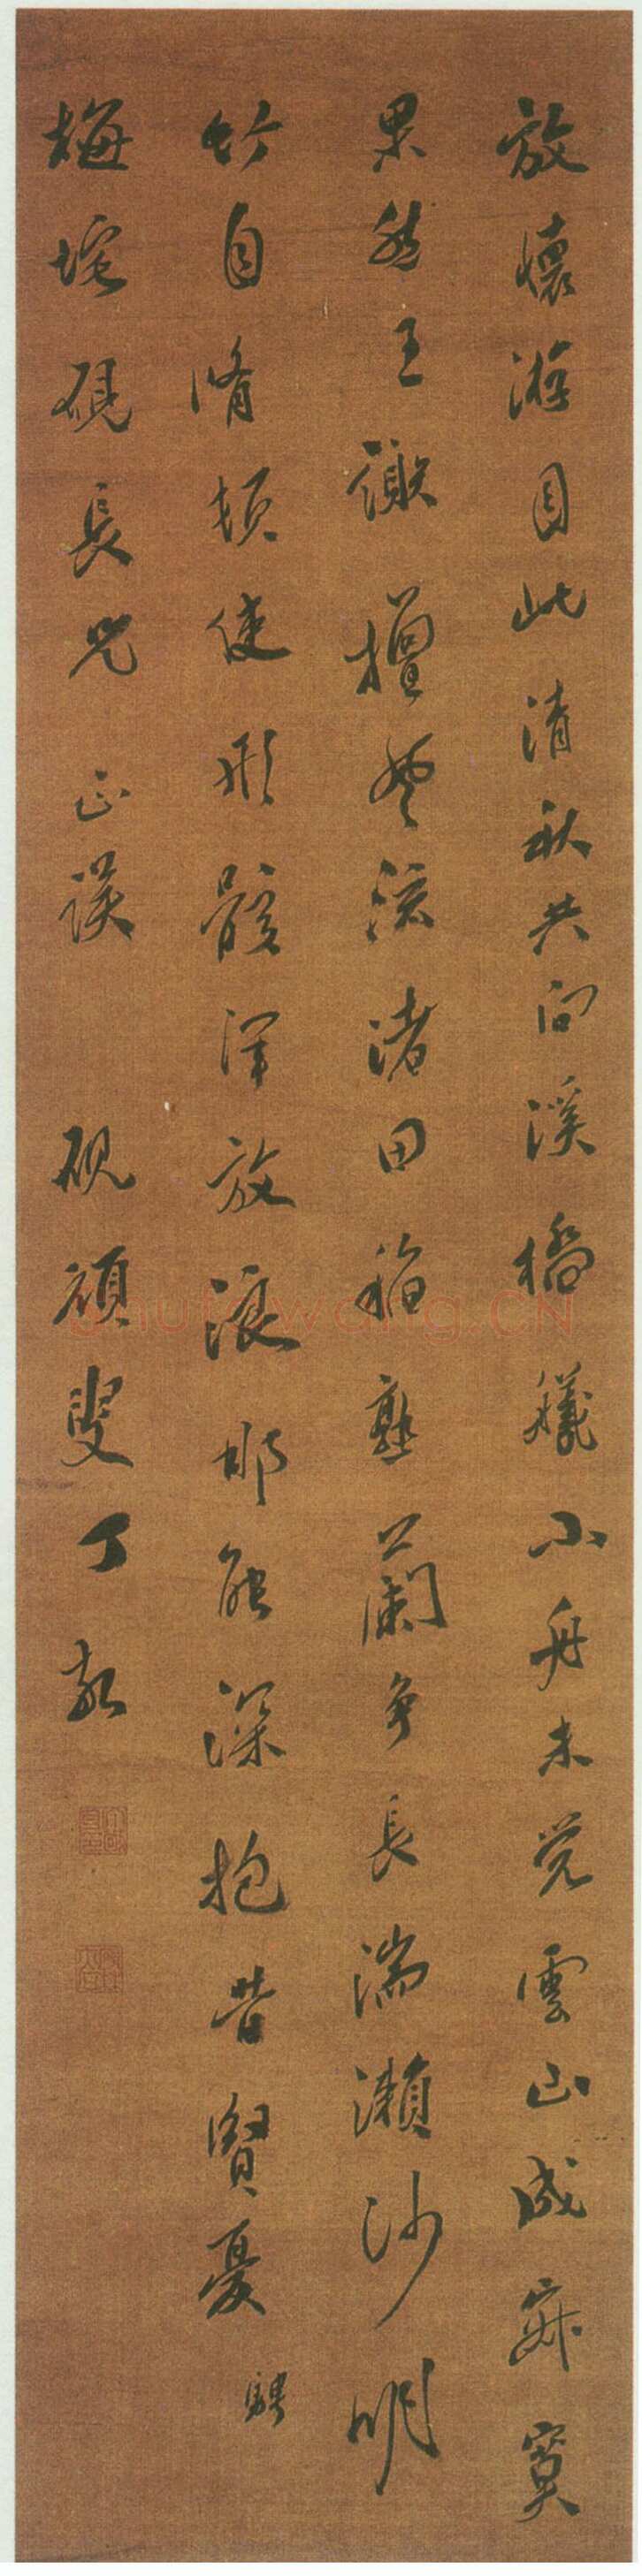 放懷游目此清秋共向溪橋艤小舟未覺雲山成寂寞
果然王謝擅風流渚田稻熟蘭争長湍瀨沙明
竹自脩頓使形骸渾放浪那能深抱昔賢憂 騁
梅垞硯長兄 正謬 硯頑叟丁敬
shufawang.CN